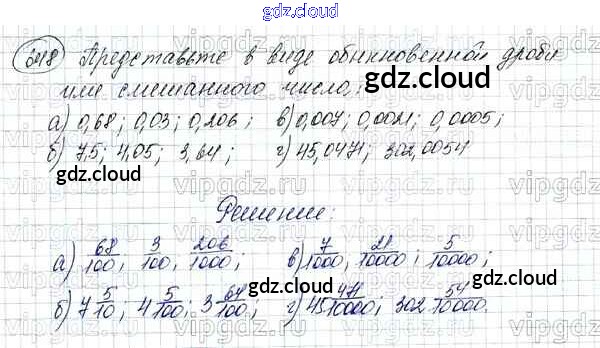 gdz.cloud
548 Представьте в виде обыкновенной дроби
или смешанного числа:
а) 0,68; 0,03; 0,206; в) 0,007; 0,0021; 0,0005;
б) 7,5; 4,05; 3,64; г) 45,0471; 302,0054
Решение:
а) 68/100; 3/100; 206/1000; в) 7/1000; 21/10000; 5/10000;
б) 7 5/10; 4 5/100; 3 64/100; г) 45 471/10000; 302 54/10000.
gdz.cloud
gdz.cloud
gdz.cloud
gdz.cloud
gdz.cloud
vipgdz.ru